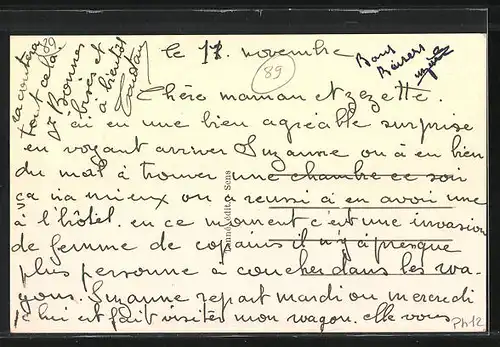 le 17. novembre
89
Chère maman et zezette.
ai eu une bien agréable surprise
en voyant arriver Suzanne on a eu bien
du mal à trouver une chambre ce soir
ça va mieux on a reussi a en avoir une
a l'hôtel. en ce moment c'est une invasion
de femme de copains il n'y a presque
plus personne à coucher dans les wa-
gons. Suzanne repart mardi ou mercredi
je lui est fait visiter mon wagon. elle vous
racontera
tout cela
Bonnes
bises et
a bientôt
89
Bons
Baisers
édit. Sens
Ph12